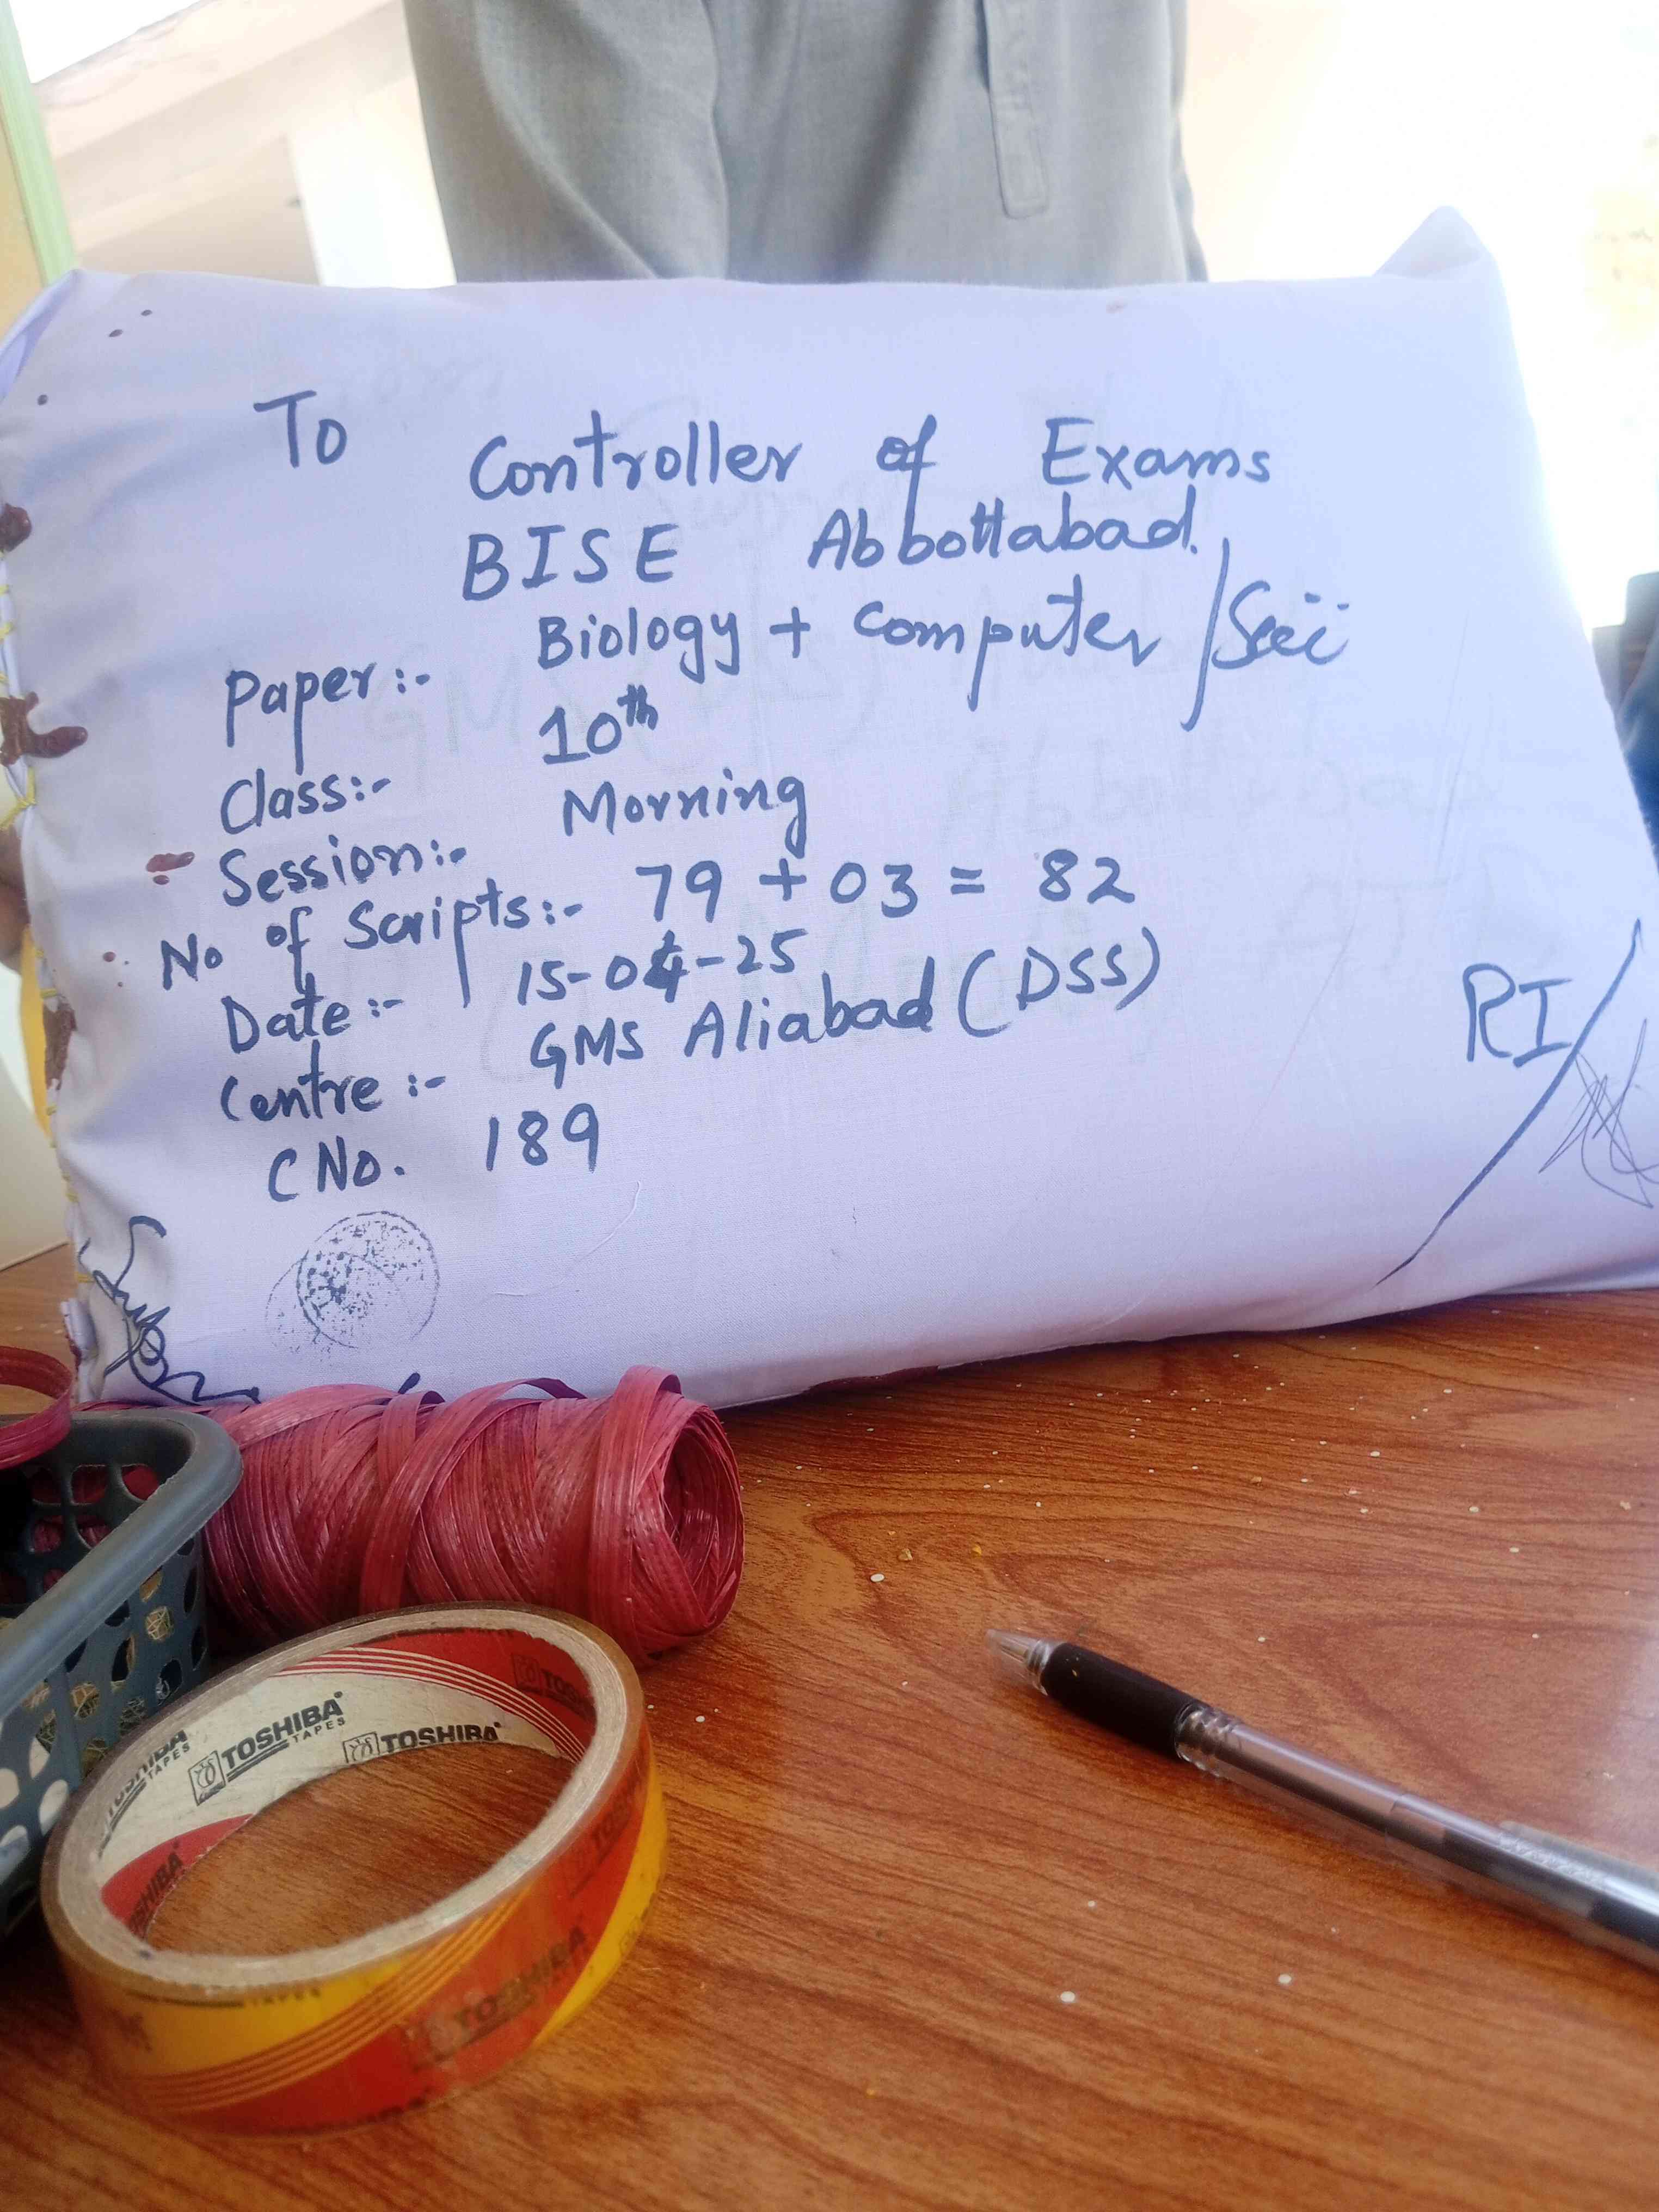 To
Controller of Exams
BISE Abbottabad.
Paper:- Biology + Computer / Sci
Class:- 10th
Session:- Morning
No of Scripts:- 79 + 03 = 82
Date:- 15-04-25
Centre:- GMS Aliabad (DSS)
C No. 189
RI/
TOSHIBA
TAPES
TOSHIBA
TAPES
TOSHIBA
TOSHIBA
TOSHIBA